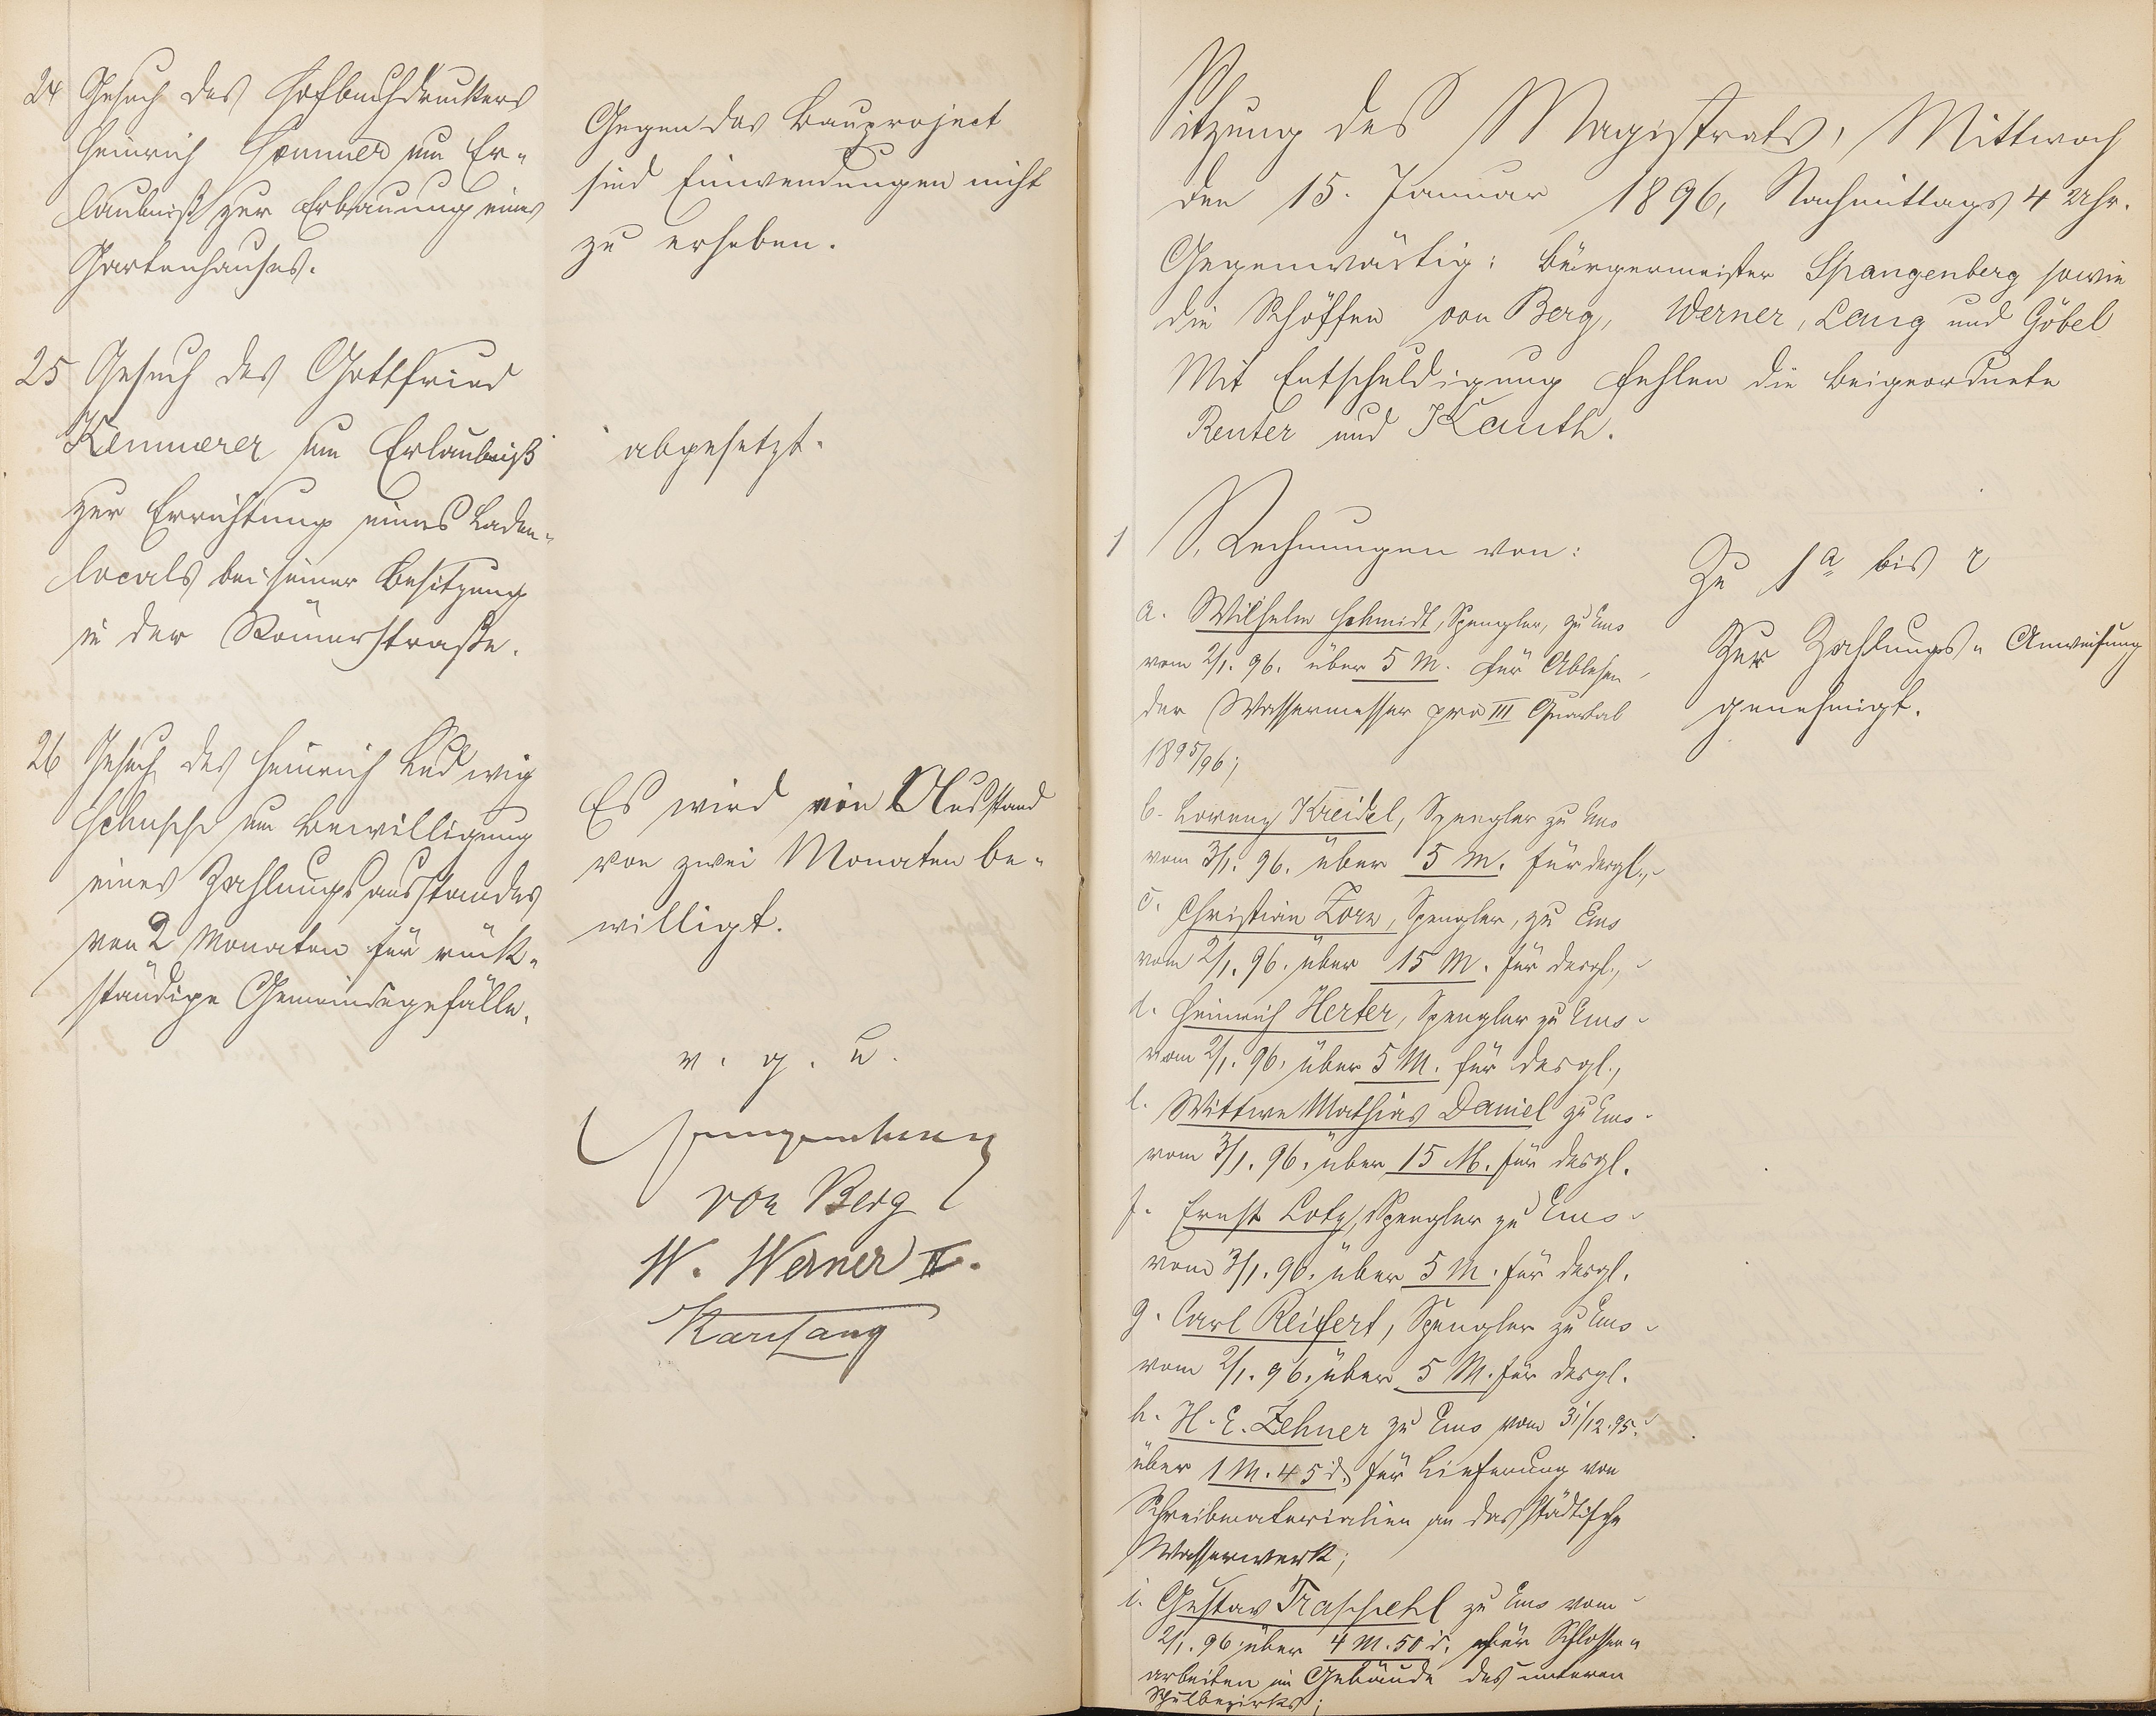 24 Gesuch des Hofbuchdruckers
Heinrich Sommer um Er-
laubniß zur Erbauung eines
Gartenhauses.
Gegen das Bauproject
sind Einwendungen nicht
zu erheben.
25 Gesuch des Gottfried
Kemmerer um Erlaubniß
zur Errichtung eines Laden-
locals bei seiner Besitzung
in der Römerstraße.
abgesetzt.
26 Gesuch des Heinrich Ludwig
um Bewilligung
eines Zahlungsausstandes
von 2 Monaten für rück-
ständige Gemeindegefälle.
Es wird ein Ausstand
von zwei Monaten be-
willigt.
v. g. u.
Spangenberg
von Berg
W. Werner II.
Karl Lang
Sitzung des Magistrats, Mittwoch
den 15. Januar 1896, Nachmittags 4 Uhr.
Gegenwärtig: Bürgermeister Spangenberg sowie
die Schöffen von Berg, Werner, Lang und Göbel
Mit Entschuldigung fehlen die Beigeordnete
Reuter und Kauth.
1 Rechnungen von:
a. Wilhelm Schmidt, Spengler, zu Ems
vom 2/1. 96. über 5 M. für Ablesen
der Wassermesser pro III Quartal
1895/96;
b. Lorenz Kreidel, Spengler zu Ems
vom 3/1. 96. über 5 M. für desgl.,
c. Christian Zorn, Spengler, zu Ems
vom 2/1. 96. über 15 M. für desgl.,
d. Heinrich Herter, Spengler zu Ems
vom 2/1. 96. über 5 M. für desgl.,
e. Wittwe Mathias Daniel zu Ems
vom 3/1. 96. über 15 M. für desgl.
f. Ernst Lotz, Spengler zu Ems
vom 3/1. 96. über 5 M. für desgl.
g. Carl Reifert, Spengler zu Ems
vom 2/1. 96. über 5 M. für desgl.
h. H. E. Zehner zu Ems vom 31/12.95.
über 1 M. 45 d. für Lieferung von
Schreibmaterialien an das städtische
Wasserwerk;
i. Gustav zu Ems vom
2/1. 96 über 4 M. 50 d. für Schlosser-
arbeiten im Gebäude des unteren
Schulbezirks;
Zu 1a bis
Zur Zahlungs-Anweisung
genehmigt.